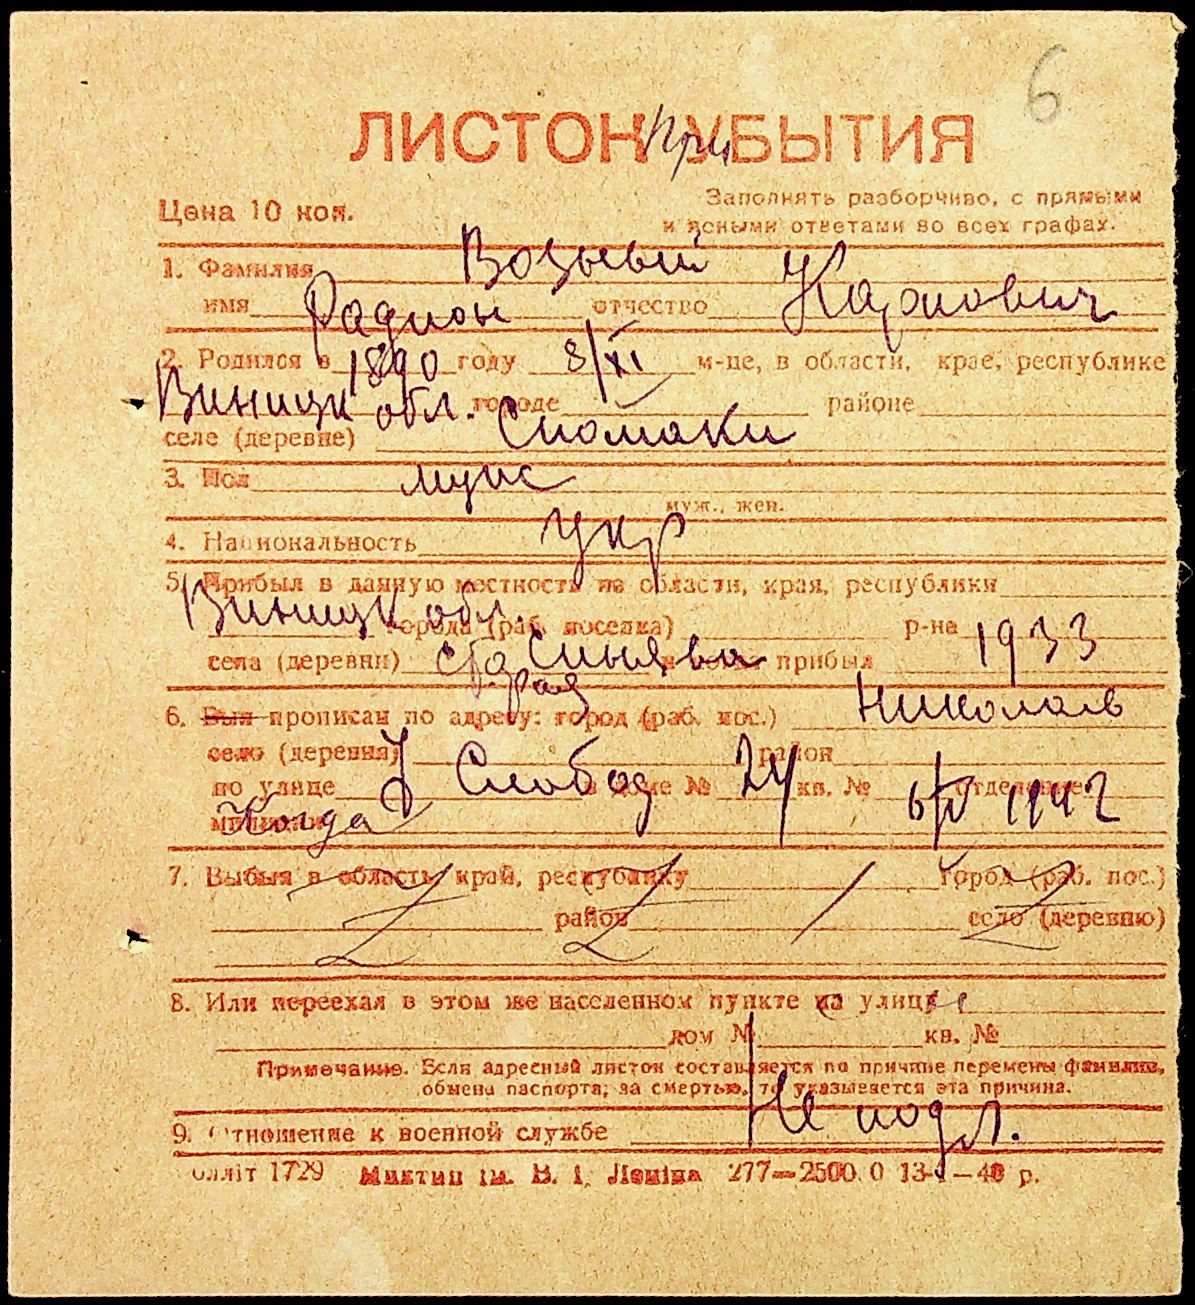 6
ЛИСТОК УБЫТИЯ
При
Цена 10 коп.
Заполнять разборчиво, с прямыми
и ясными ответами во всех графах.
1. Фамилия Возывий
имя Радион отчество Карпович
2. Родился в 1890 году 8/XI м-це, в области, крае, республике
Виницк обл. городе районе
селе (деревне) Сломаки
3. Пол муж
муж., жен.
4. Национальность Укр
5. Прибыл в данную местность из области, края, республики
Виницк обл. города (раб. поселка) р-на 1933
села (деревни) Синява прибыл
6. Был прописан по адресу: город (раб. пос.) Николаев
село (деревня) район
по улице 7 Слобод в доме № 24 кв. № отделение
милиции Когда 6/IV 1942
7. Выбыл в область, край, республику город (раб. пос.)
район село (деревню)
8. Или переехал в этом же населенном пункте на улицу
дом № кв. №
Примечание. Если адресный листок составляется по причине перемены фамилии,
обмена паспорта, за смертью, то указывается эта причина.
9. Отношение к военной службе Не подл.
1729 ім. В. І. Леніна 277—2500 0 13- —40 р.